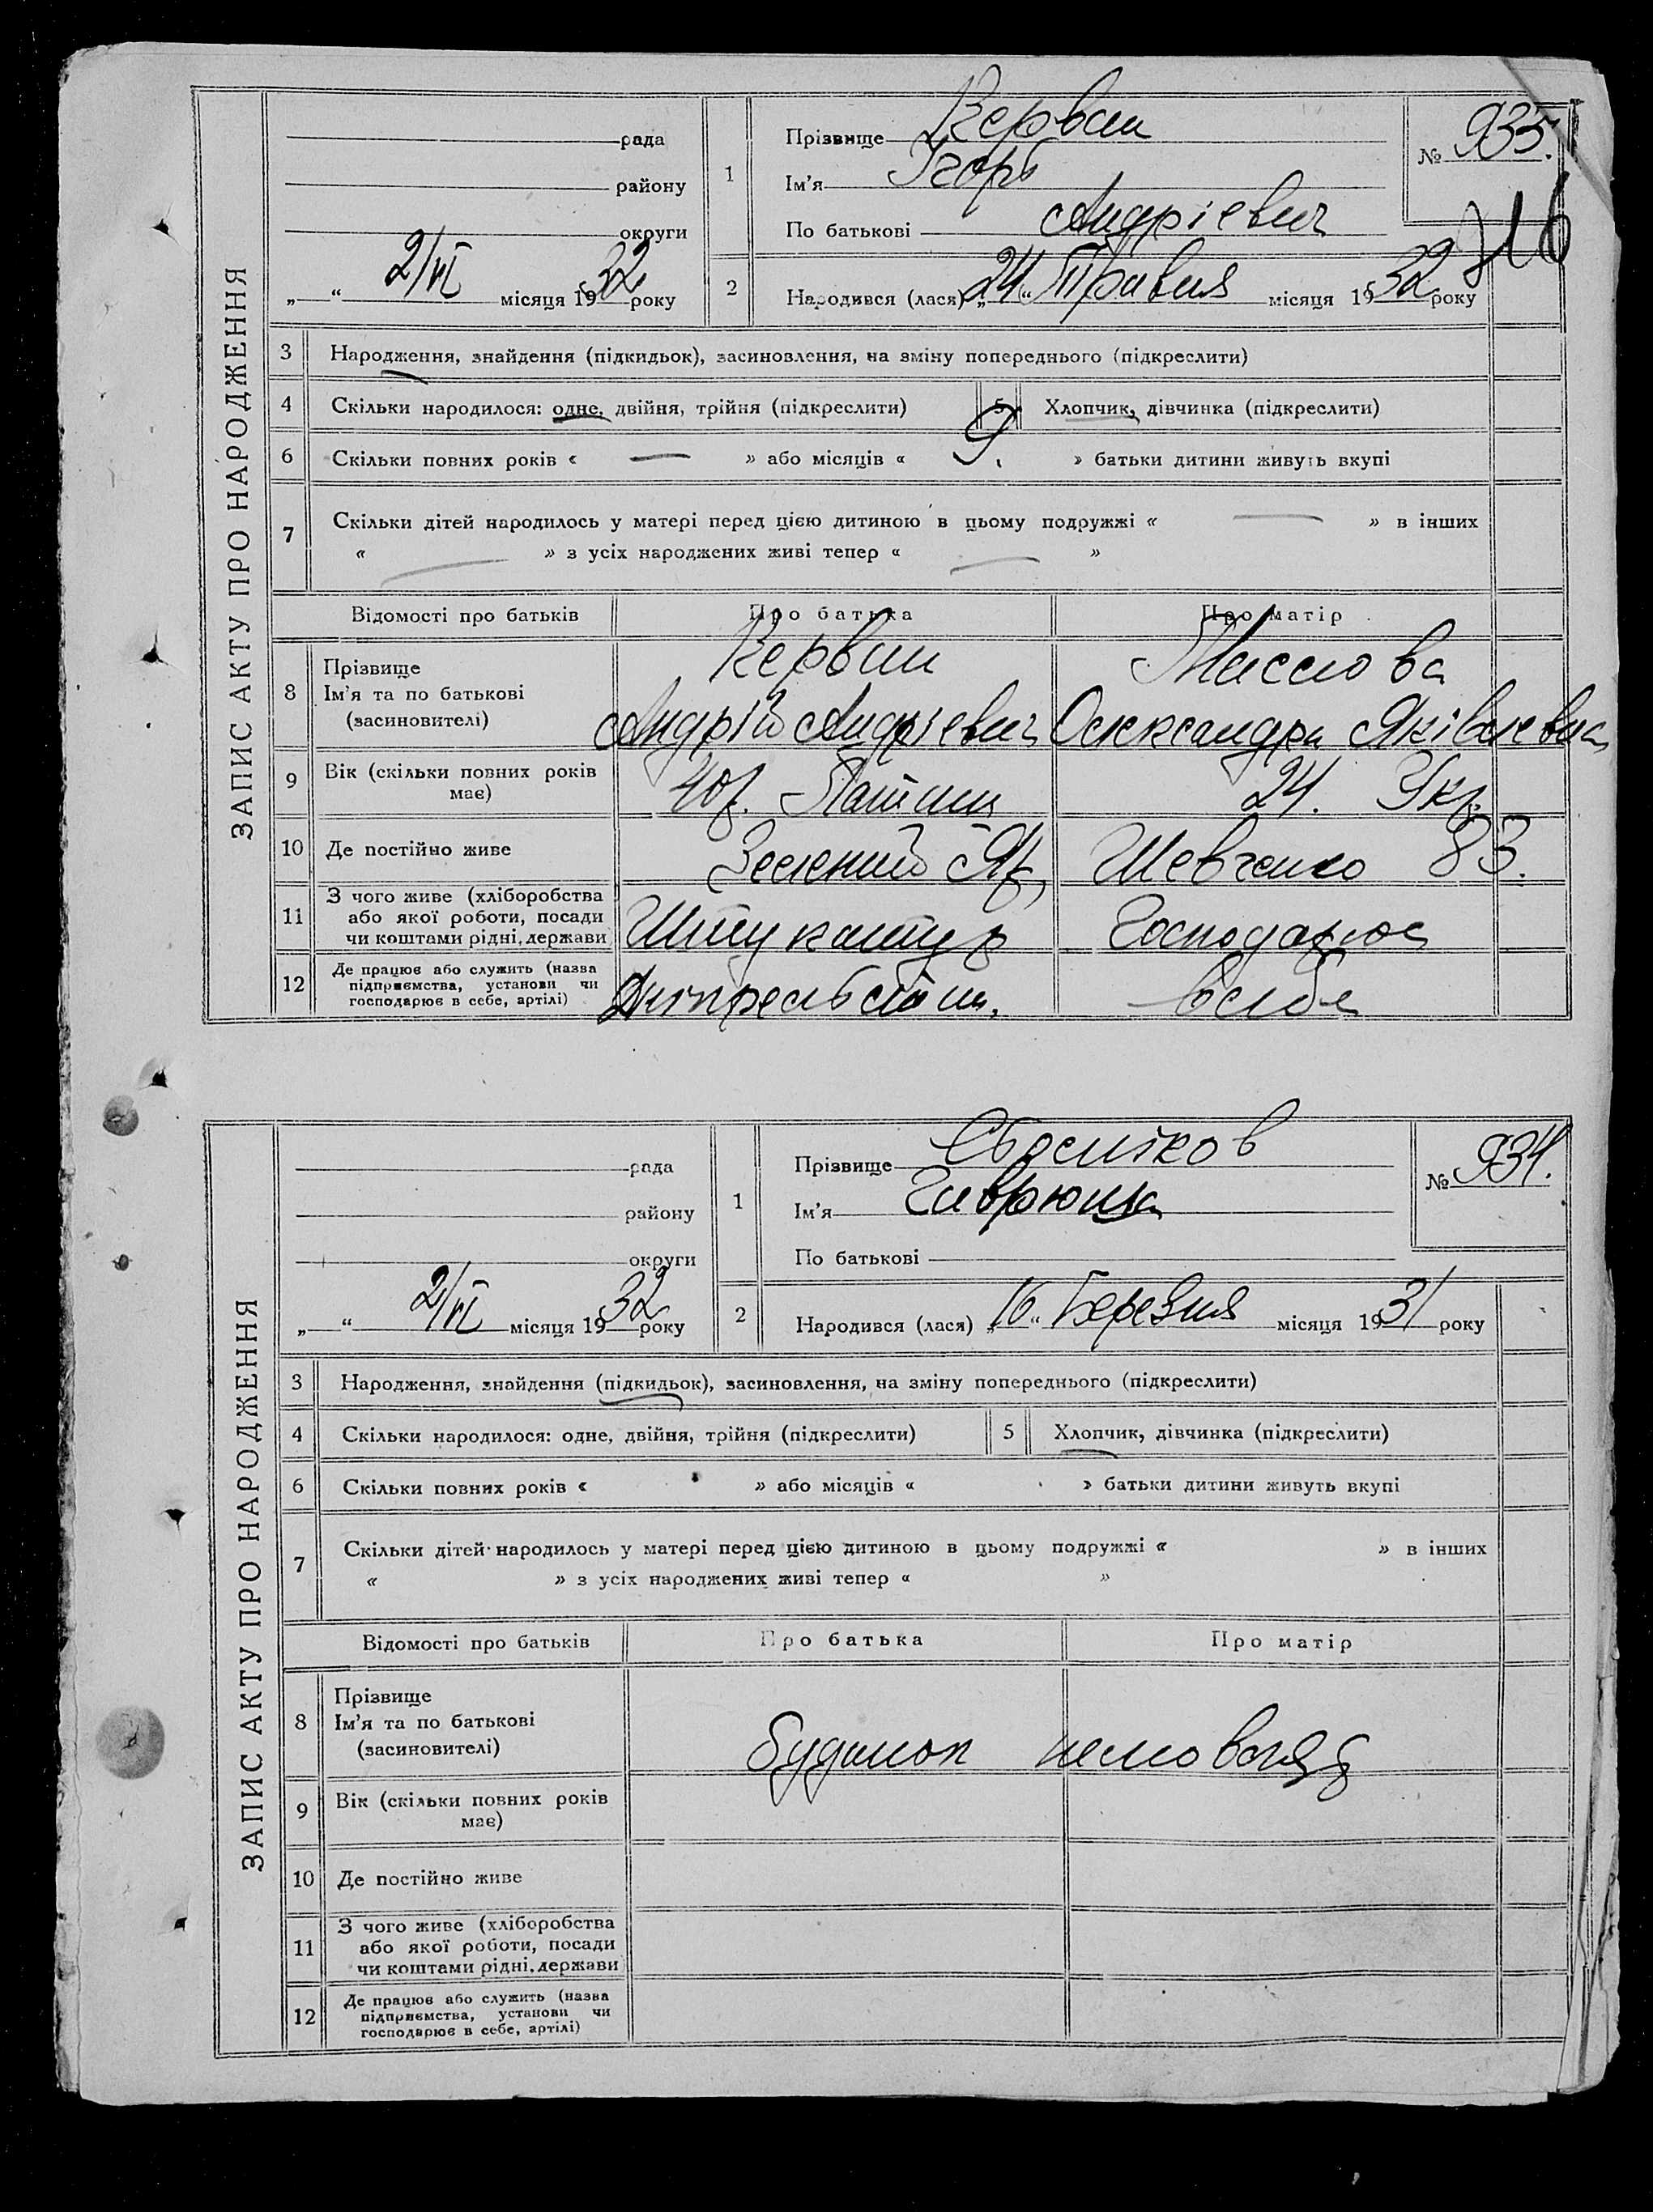 ЗАПИС АКТУ ПРО НАРОДЖЕННЯ
рада
району
округи
„ “ 2/VI місяця 1932 року
1
Прізвище Керван
Ім’я Ігорь
По батькові Андрієвич
№ 935.
216
2
Народився (лася) „24“ Травня місяця 1932 року
3 Народження, знайдення (підкидьок), засиновлення, на зміну попереднього (підкреслити)
4 Скільки народилося: одне, двійня, трійня (підкреслити) 5 Хлопчик, дівчинка (підкреслити)
6 Скільки повних років « — » або місяців « 9. » батьки дитини живуть вкупі
7 Скільки дітей народилось у матері перед цією дитиною в цьому подружжі « — » в інших
« — » з усіх народжених живі тепер « — »
Відомості про батьків Про батька Про матір
8 Прізвище
Ім’я та по батькові
(засновителі)
Керван
Андрій Андрієвич
Маслова
Олександра Яківлевна
9 Вік (скільки повних років має) 40р. 24. Укр.
10 Де постійно живе Зелений Яр, Шевченко 83.
11 З чого живе (хліборобства
або якої роботи, посади
чи коштами рідні, держави
Штукатур Господарює
12 Де працює або служить (назва
підприємства, установи чи
господарює в себе, артілі)
в себе
ЗАПИС АКТУ ПРО НАРОДЖЕННЯ
рада
району
округи
„ “ 2/VI місяця 1932 року
1
Прізвище
Ім’я Гаврюша
По батькові
№ 934.
2
Народився (лася) „16“ Березня місяця 1931 року
3 Народження, знайдення (підкидьок), засиновлення, на зміну попереднього (підкреслити)
4 Скільки народилося: одне, двійня, трійня (підкреслити) 5 Хлопчик, дівчинка (підкреслити)
6 Скільки повних років « » або місяців « » батьки дитини живуть вкупі
7 Скільки дітей народилось у матері перед цією дитиною в цьому подружжі « » в інших
« » з усіх народжених живі тепер « »
Відомості про батьків Про батька Про матір
8 Прізвище
Ім’я та по батькові
(засиновителі)
будинок немовляд
9 Вік (скільки повних років має)
10 Де постійно живе
11 З чого живе (хліборобства
або якої роботи, посади
чи коштами рідні, держави
12 Де працює або служить (назва
підприємства, установи чи
господарює в себе, артілі)